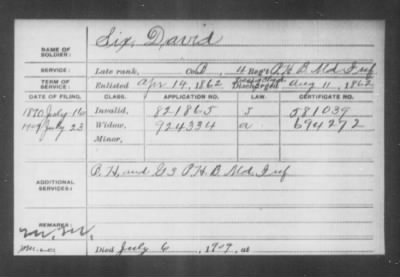 NAME OF SOLDIER: Six, David
SERVICE: Late rank, Co. D, 4 Reg't P. H. B. Md. Inf
TERM OF SERVICE: Enlisted Apr 14, 1862 Discharged Aug 11, 1862
DATE OF FILING. CLASS. APPLICATION NO. LAW. CERTIFICATE NO.
1890 July 16 Invalid, 821865 J 581039
1909 July 23 Widow, 924334 a 694272
Minor,
ADDITIONAL SERVICES: P. H. B. Md. Inf
REMARKS:
Died July 6, 1909, at